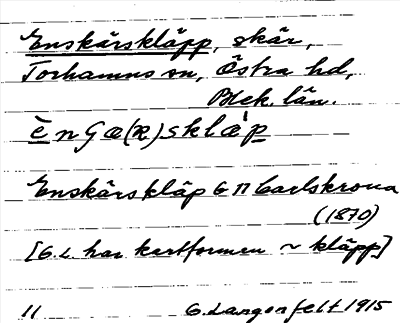 Enskärskläpp, skär,
Torhamns sn, Östra hd,
Blek. län.
è n g æ (r) s k l æ̀ p
Enskärskläp G II Carlskrona
(1870)
[G.L. har kartformen ~ kläpp]
11 G. Langenfelt 1915